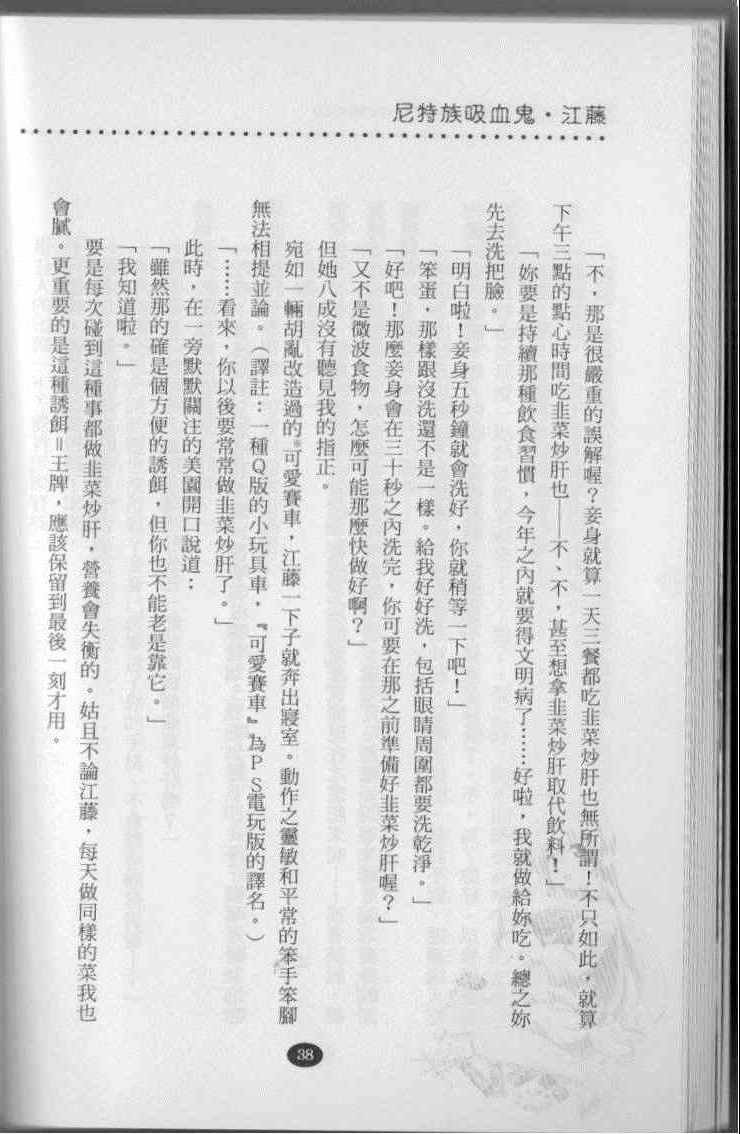 尼特族吸血鬼・江藤
「不，那是很嚴重的誤解喔？妾身就算一天三餐都吃韭菜炒肝也無所謂！不只如此，就算
下午三點的點心時間吃韭菜炒肝也——不、不，甚至想拿韭菜炒肝取代飲料！」
「妳要是持續那種飲食習慣，今年之內就要得文明病了……好啦，我就做給妳吃。總之妳
先去洗把臉。」
「明白啦！妾身五秒鐘就會洗好，你就稍等一下吧！」
「笨蛋，那樣跟沒洗還不是一樣。給我好好洗，包括眼睛周圍都要洗乾淨。」
「好吧！那麼妾身會在三十秒之內洗完，你可要在那之前準備好韭菜炒肝喔？」
「又不是微波食物，怎麼可能那麼快做好啊？」
但她八成沒有聽見我的指正。
宛如一輛胡亂改造過的※可愛賽車，江藤一下子就奔出寢室。動作之靈敏和平常的笨手笨腳
無法相提並論。（譯註：一種Q版的小玩具車，『可愛賽車』為PS電玩版的譯名。）
「……看來，你以後要常常做韭菜炒肝了。」
此時，在一旁默默關注的美園開口說道：
「雖然那的確是個方便的誘餌，但你也不能老是靠它。」
「我知道啦。」
要是每次碰到這種事都做韭菜炒肝，營養會失衡的。姑且不論江藤，每天做同樣的菜我也
會膩。更重要的是這種誘餌＝王牌，應該保留到最後一刻才用。
38